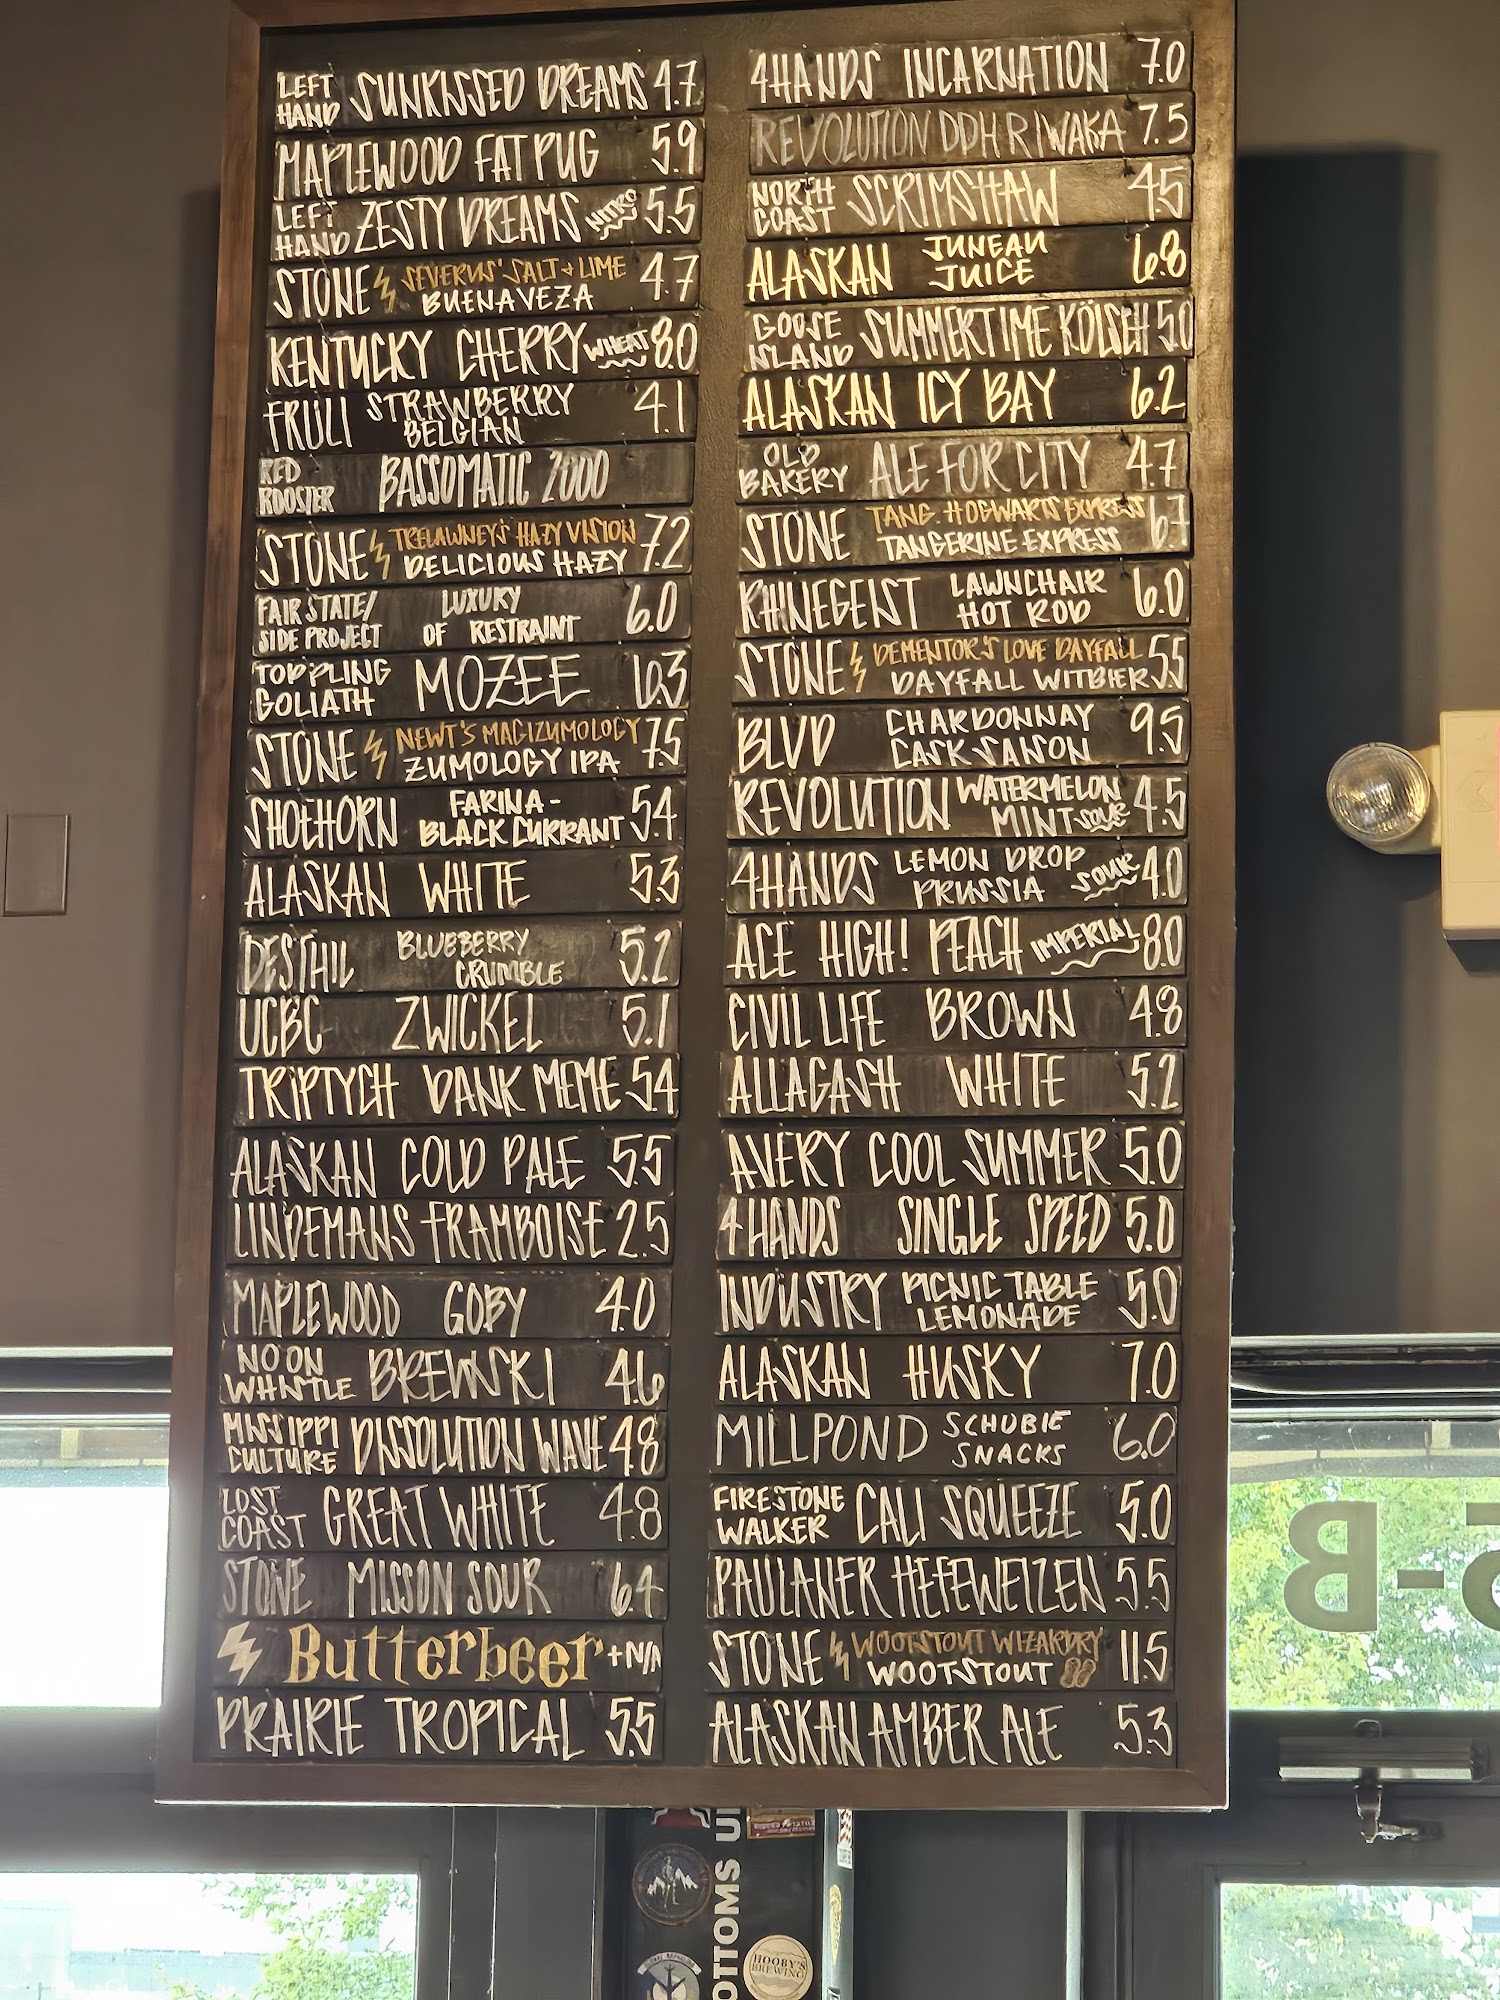 LEFT HAND SUNKISSED DREAMS 4.7
MAPLEWOOD FAT PUG 5.9
LEFT HAND ZESTY DREAMS NITRO 5.5
STONE SEVERUS' SALT & LIME BUENAVEZA 4.7
KENTUCKY CHERRY WHEAT 8.0
FRULI STRAWBERRY BELGIAN 4.1
RED ROOSTER BASSOMATIC 2000
STONE TRELAWNEY'S HAZY VISION DELICIOUS HAZY 7.2
FAIR STATE/ SIDE PROJECT LUXURY OF RESTRAINT 6.0
TOPPLING GOLIATH MOZEE 10.3
STONE NEWT'S MAGIZUMOLOGY ZUMOLOGY IPA 7.5
SHOEHORN FARINA- BLACK CURRANT 5.4
ALASKAN WHITE 5.3
DESTHIL BLUEBERRY CRUMBLE 5.2
UCBC ZWICKEL 5.1
TRIPTYCH DANK MEME 5.4
ALASKAN COLD PALE 5.5
LINDEMANS FRAMBOISE 2.5
MAPLEWOOD GOBY 4.0
NOON WHISTLE BREWSKI 4.6
MISSIPPI CULTURE DISSOLUTION WAVE 4.8
LOST COAST GREAT WHITE 4.8
STONE MISSON SOUR 6.4
Butterbeer +N/A
PRAIRIE TROPICAL 5.5
4HANDS INCARNATION 7.0
REVOLUTION DDH RIWAKA 7.5
NORTH COAST SCRIMSHAW 4.5
ALASKAN JUNEAU JUICE 6.8
GOOSE ISLAND SUMMERTIME KÖLSCH 5.0
ALASKAN ICY BAY 6.2
OLD BAKERY ALE FOR CITY 4.7
STONE TANG. HOGWARTS EXPRESS TANGERINE EXPRESS 6.7
RHINEGEIST LAWNCHAIR HOT ROD 6.0
STONE DEMENTOR'S LOVE DAYFALL DAYFALL WITBIER 5.5
BLVD CHARDONNAY CASK SAISON 9.5
REVOLUTION WATERMELON MINT SOUR 4.5
4HANDS LEMON DROP PRUSSIA SOUR 4.0
ACE HIGH! PEACH IMPERIAL 8.0
CIVIL LIFE BROWN 4.8
ALLAGASH WHITE 5.2
AVERY COOL SUMMER 5.0
4HANDS SINGLE SPEED 5.0
INDUSTRY PICNIC TABLE LEMONADE 5.0
ALASKAN HUSKY 7.0
MILLPOND SCHUBIE SNACKS 6.0
FIRESTONE WALKER CALI SQUEEZE 5.0
PAULANER HEFEWEIZEN 5.5
STONE WOOTSTOUT WIZARDRY WOOTSTOUT 11.5
ALASKAN AMBER ALE 5.3
5-B
OTTOMS U
HOOBY'S BREWING